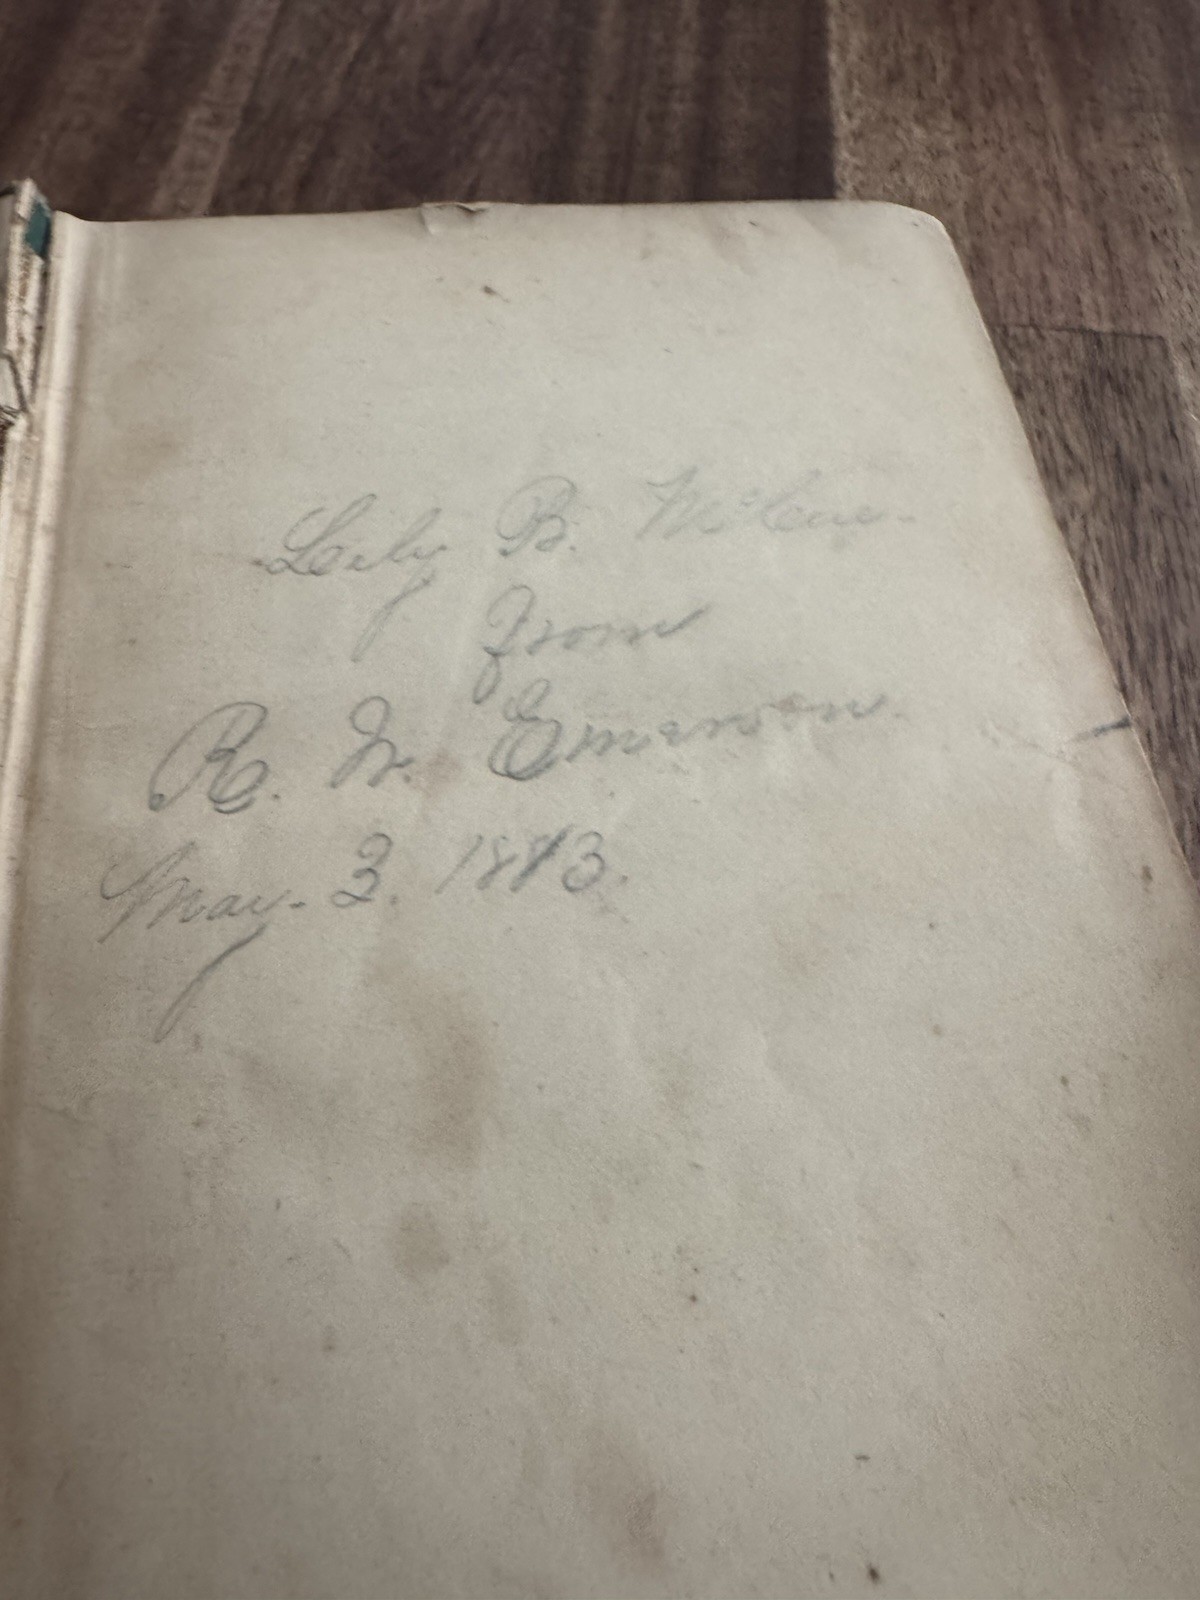 Lily B. McCue.
from
R. W. Emerson.
May. 3. 1873.